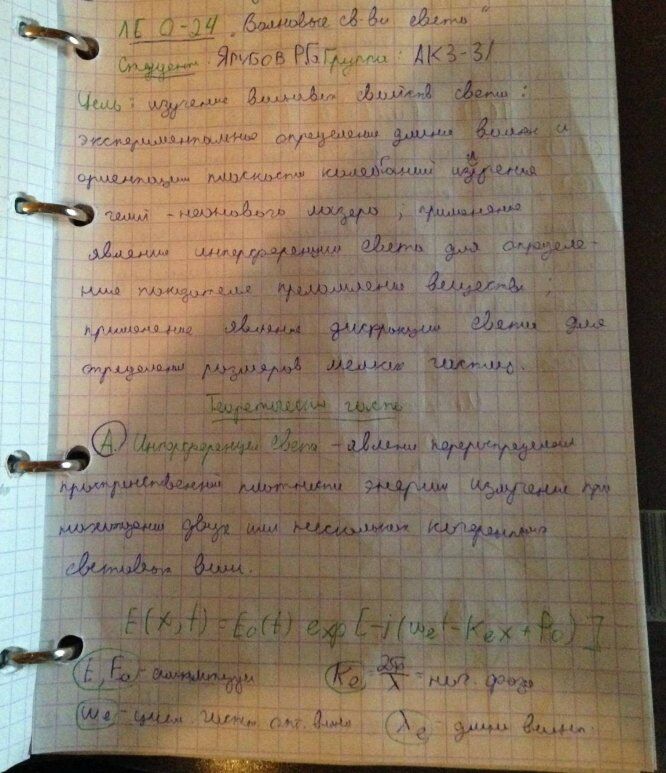 ЛЕ О-24 „Волновые св-ва света"
Студент: ЯГУБОВ РБ Группа: АК3-31
Цель: изучение волновых свойств света:
экспериментальное определение длины волны и
ориентации плоскости колебаний излучения
гелий-неонового лазера; применение
явление интерференции света для определе-
ние показателя преломления веществ;
применение явление дифракции света для
определения размеров мелких частиц.
Теоретическая часть
А. Интерференция света - явление перераспределения
пространственной плотности энергии излучения при
нахождении двух или нескольких когерентных
световых волн.
E(x,t) = E₀(t) exp[-j(ωet - Kex + φ₀)]
E, E₀ - амплитуды Ke = 2π/λ - нач. фаза
ωe - цикл. част. опт. волн λe - длина волны